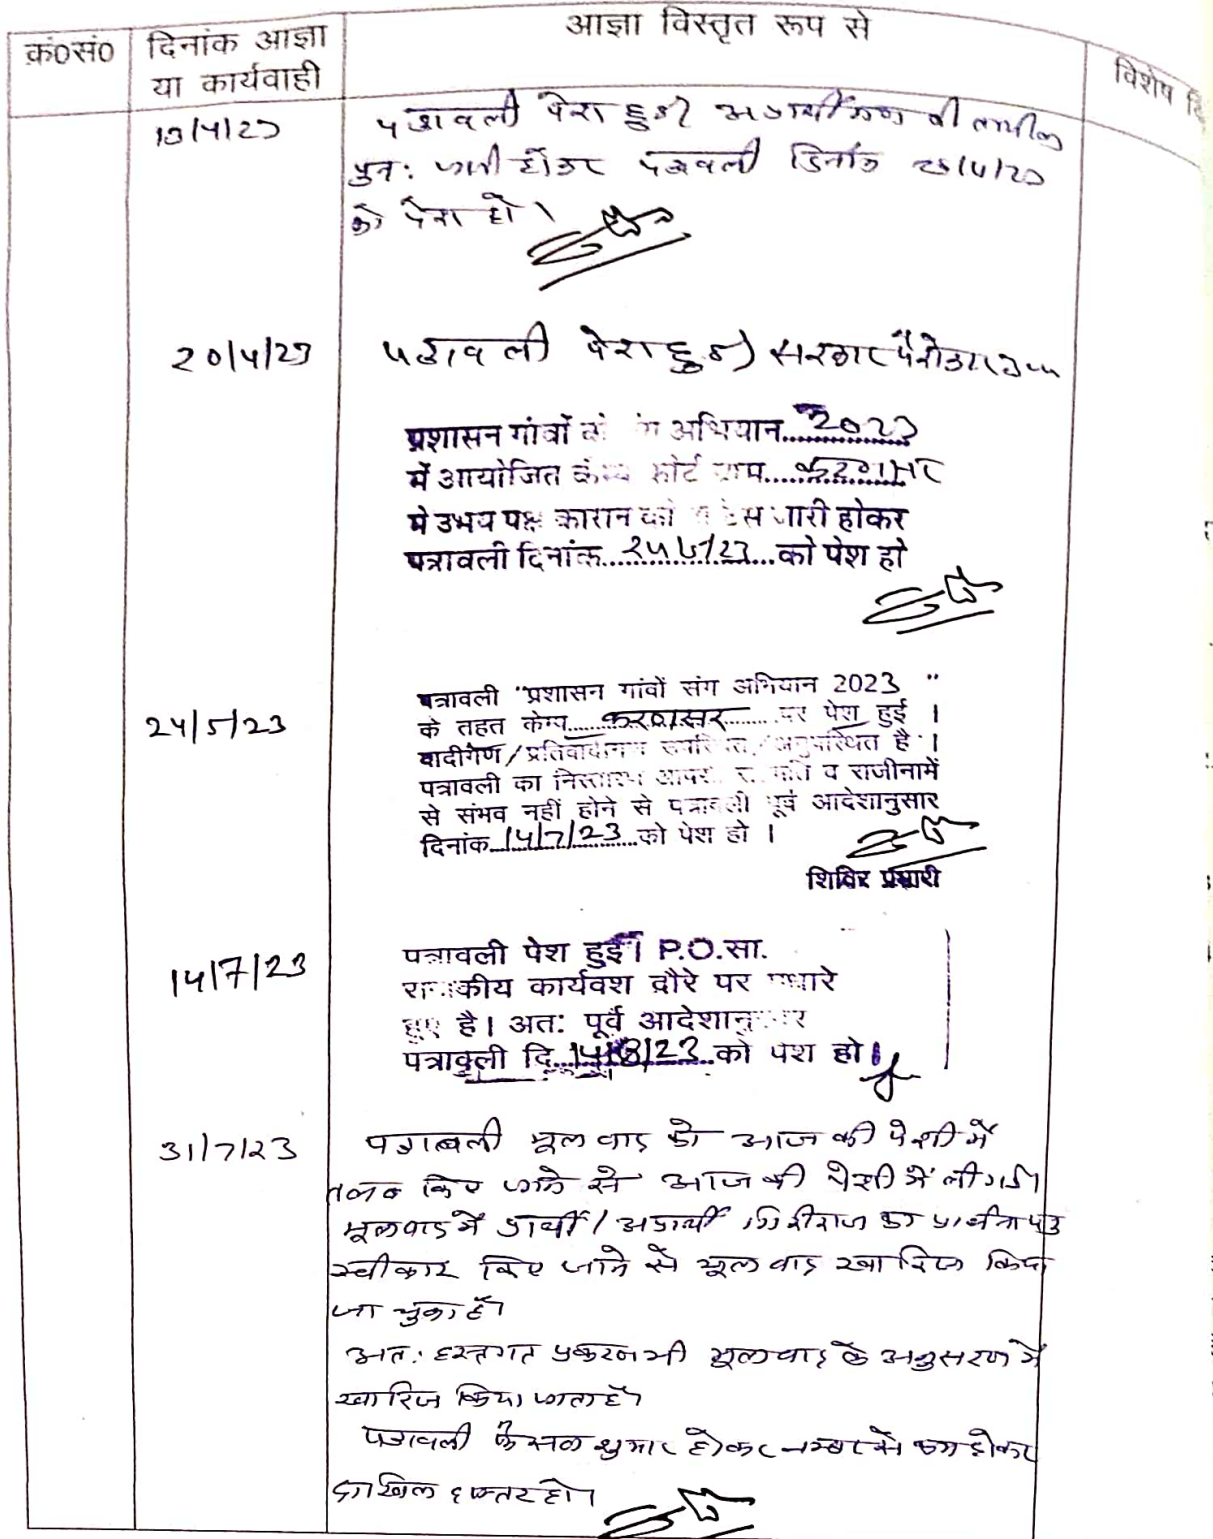 क्र०सं०
दिनांक आज्ञा
या कार्यवाही
आज्ञा विस्तृत रूप से
विशेष
पत्रावली पेश हुई अप्रार्थीगण की तामील
पुन: जारी होकर पत्रावली दिनांक
को पेश हो।
20/4/23
पत्रावली पेश हुई सरकार पैरोकार
प्रशासन गांवों के संग अभियान 2023
में आयोजित केम्प कोर्ट ग्राम करणसर
मे उभय पक्ष कारान को जारी होकर
पत्रावली दिनांक 24/5/23 को पेश हो
24/5/23
पत्रावली "प्रशासन गांवों संग अभियान 2023 "
के तहत केम्प करणसर पर पेश हुई ।
वादीगण/प्रतिवादीगण उपस्थित/अनुपस्थित है ।
पत्रावली का निस्तारण आपसी सहमति व राजीनामें
से संभव नहीं होने से पत्रावली पूर्व आदेशानुसार
दिनांक 14/7/23 को पेश हो ।
शिविर प्रभारी
14/7/23
पत्रावली पेश हुई। P.O.सा.
राजकीय कार्यवश दौरे पर पधारे
हुए है। अत: पूर्व आदेशानुसार
पत्रावली दि. 14/8/23 को पेश हो।
31/7/23
पत्रावली मूल वाद को आज की पेशी में
तलब किए जाने से आज की पेशी में ली गई।
मूलवाद में प्रार्थी/अप्रार्थी गिरीराज का प्रार्थना पत्र
स्वीकार किए जाने से मूल वाद खारिज किया
जा चुका है।
अत: हस्तगत प्रकरण भी मूलवाद के अनुसरण में
खारिज किया जाता है।
पत्रावली फैसल शुमार होकर नम्बर से कम होकर
दाखिल दफ्तर हो।